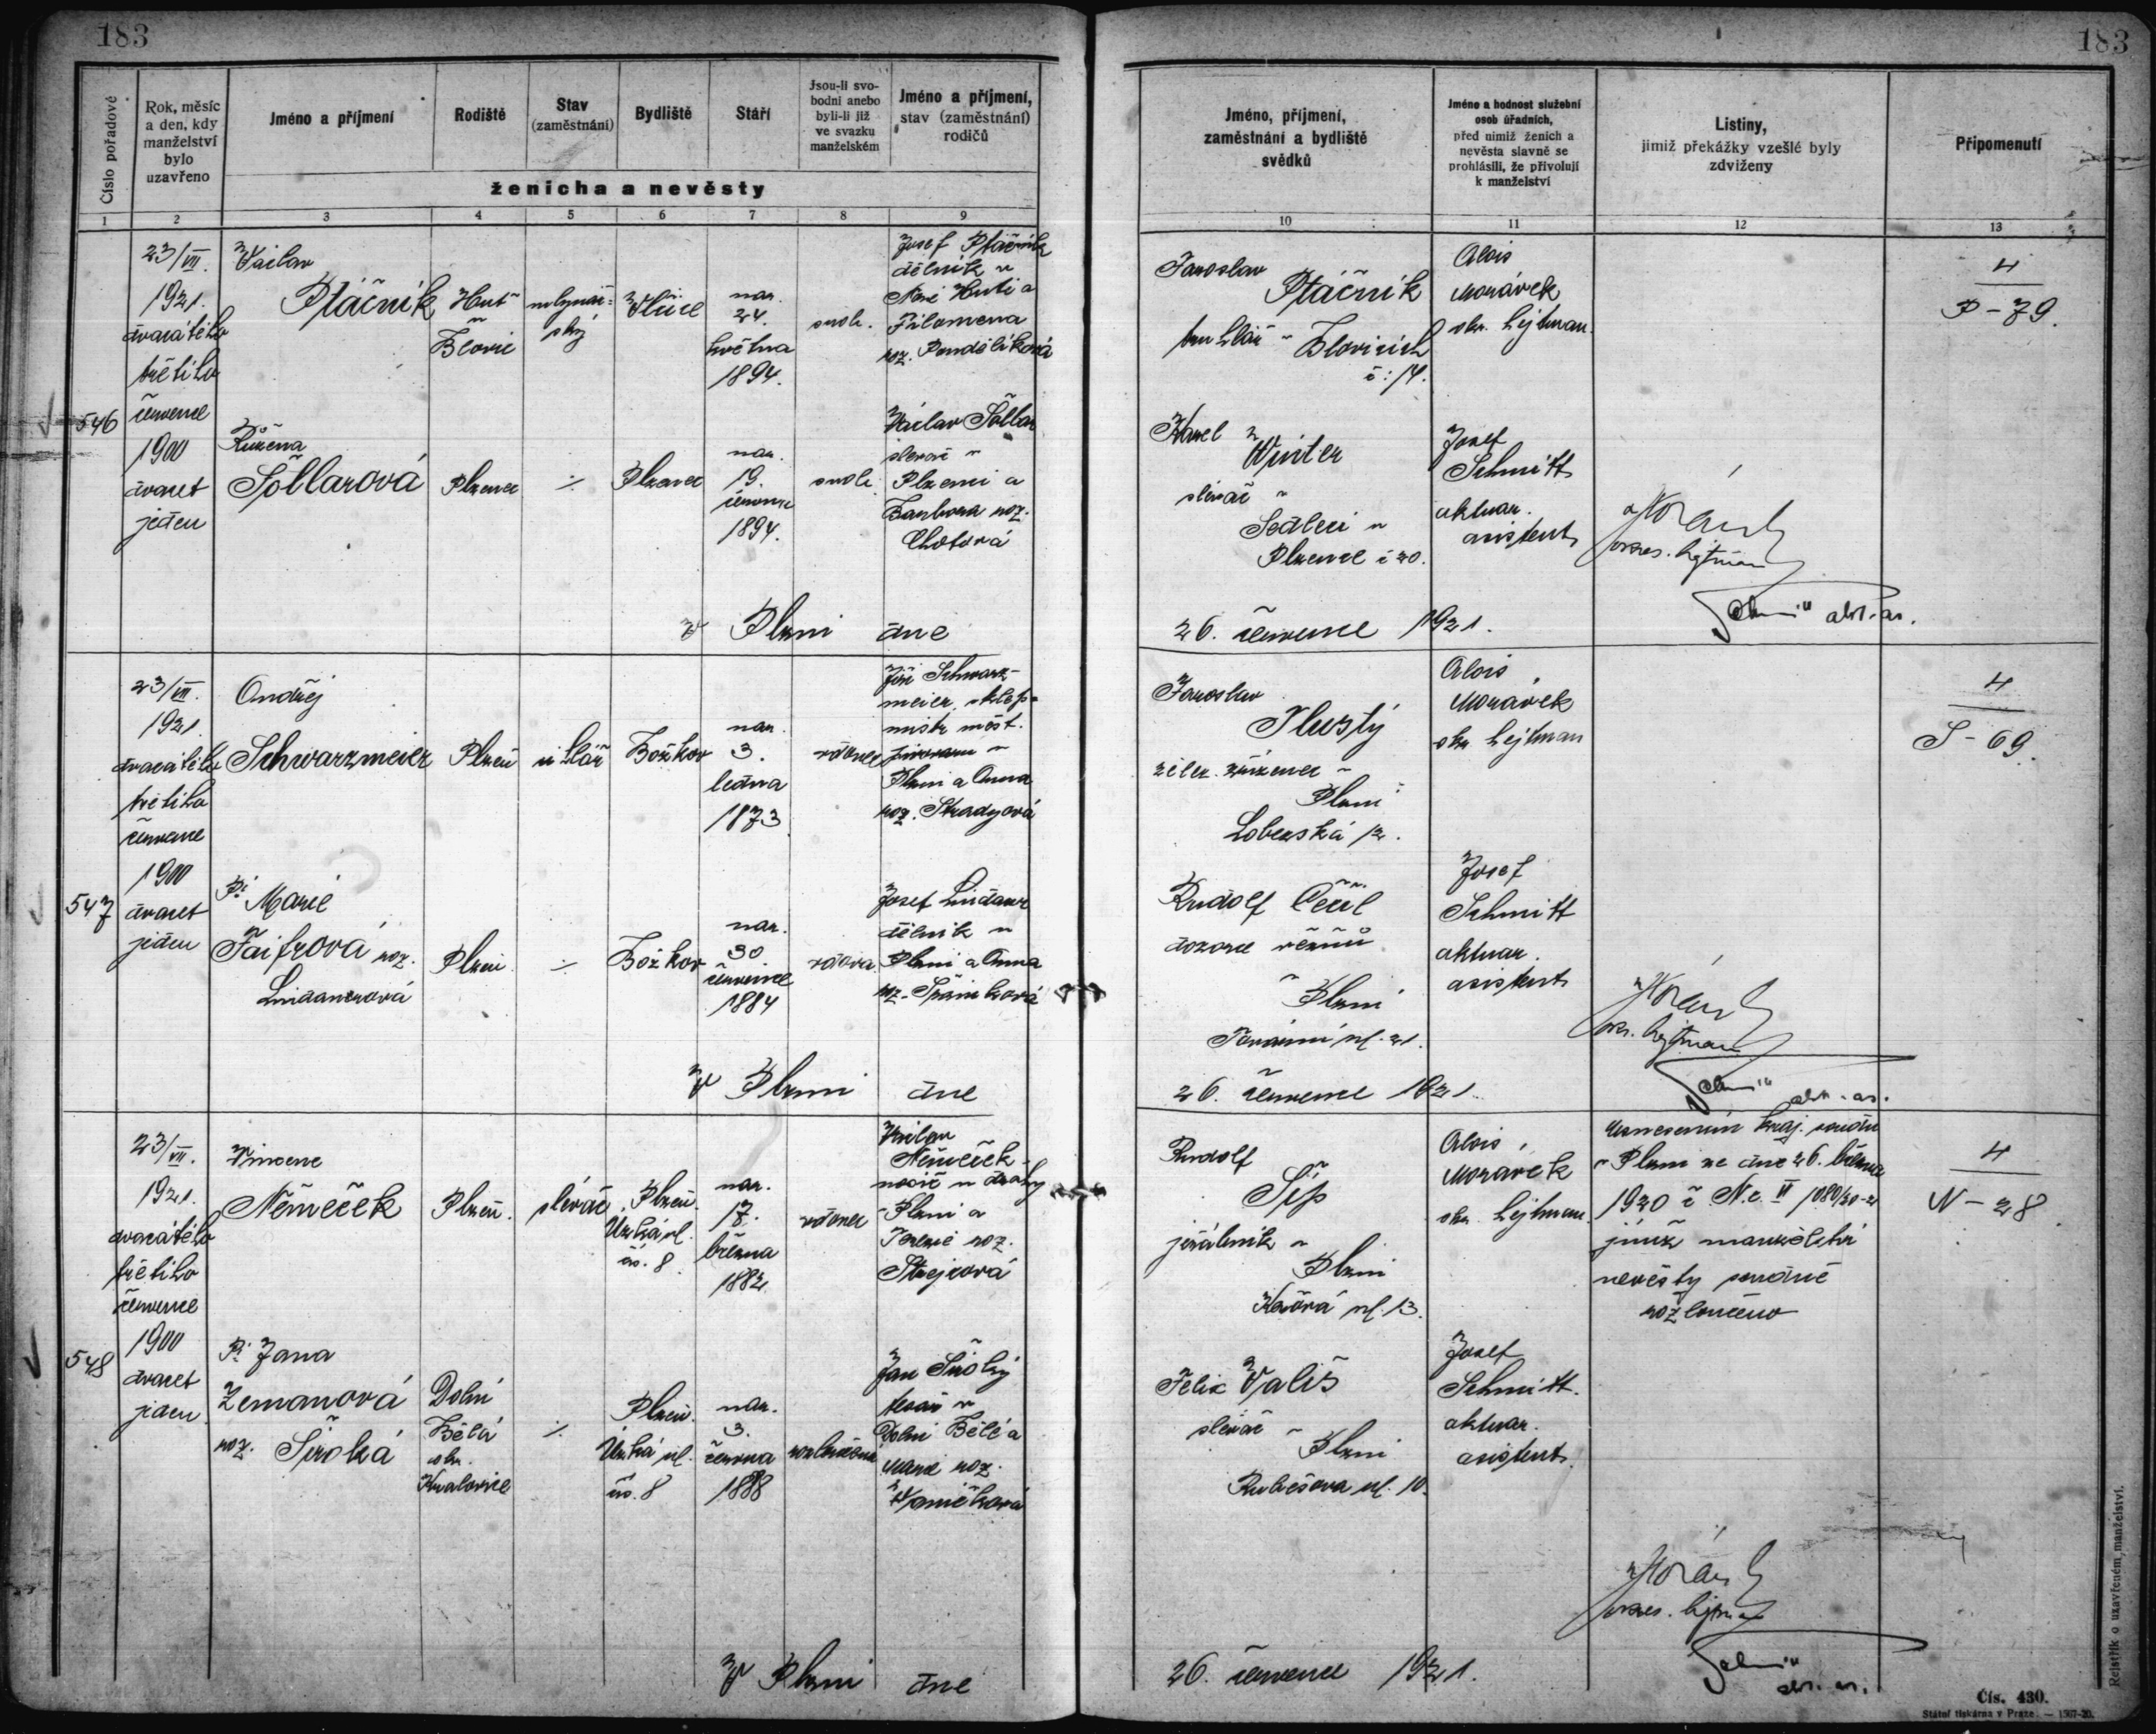 183
183
Číslo pořadové
Rok, měsíc
a den, kdy
manželství
bylo
uzavřeno
Jméno a příjmení
Rodiště
Stav
(zaměstnání)
Bydliště
Stáří
Jsou-li svo-
bodni anebo
byli-li již
ve svazku
manželském
Jméno a příjmení,
stav (zaměstnání)
rodičů
ženicha a nevěsty
1 2 3 4 5 6 7 8 9
Jméno, příjmení,
zaměstnání a bydliště
svědků
Jméno a hodnost služební
osob úřadních,
před nimiž ženich a
nevěsta slavně se
prohlásili, že přivolují
k manželství
Listiny,
jimiž překážky vzešlé byly
zdviženy
Připomenutí
10 11 12 13
546
23/VII.
1921.
dvacátého
třetího
července
1900
dvacet
jeden
Václav
Ptáčník
Huť
Blovic
nar.
24.
května
1894.
svob.
Josef Ptáčník
dělník v
Nové Huti a
Filomena
roz.
Růžena
Šöllarová
Plzenec
÷
Plzenec
nar.
19.
července
1894.
svob.
Václav Šöllar
slevač v
Plzenci a
Barbora roz.
Chotová
V Plzni dne
Jaroslav
Ptáčník
truhlář v Blovicích
č: 14.
Karel
Winter
slévač v
Sedlci u
Plzence č 20.
Alois
Morávek
okr. hejtman.
Josef
Schmitt
aktuar.
asistent
okres. hejtman
akt. as.
26. července 1921.
4
P - 79.
547
23/VII.
1921.
dvacátého
třetího
července
1900
dvacet
jeden
Ondřej
Schwarzmeier
Plzeň
Božkov
nar.
3.
ledna
1873
vdovec
Jiří Schwarz-
meier, sklep-
mistr měšt.
pivovaru v
Plzni a Anna
roz.
Pí Marie
Faifrová roz.
Lindauerová
Plzeň
÷
Božkov
nar.
30.
července
1884
vdova
Josef Lindauer
dělník v
Plzni a Anna
roz.
V Plzni dne
Jaroslav
Tlustý
želez. zřízenec v
Plzni
Lobezská 12.
Rudolf
dozorce vězňů
v Plzni
Tovární ul. 21.
Alois
Morávek
okr. hejtman
Josef
Schmitt
aktuar.
asistent
okr. hejtman
akt. as.
26. července 1921.
4
S - 69.
548
23/VII.
1921.
dvacátého
třetího
července
1900
dvacet
jeden
Vincenc
Němeček
Plzeň.
slévač
Plzeň.
Úzká ul.
čís. 8
nar.
17.
března
1882
vdovec
Němeček
nočič u dráhy
v Plzni a
Terezie roz.
Pí Jana
Zemanová
roz. Široká
Dolní
Bělá
okr.
Kralovice
÷
Plzeň.
Úzká ul.
čís. 8
nar.
3.
června
1888
rozloučená
Jan Široký
v
Dolní Bělé a
Marie roz.
Vaníčková
V Plzni dne
Rudolf
Šíp
jeřábník v
Plzni
ul. 13.
Felix Vališ
slévač v
Plzni
Rubešova ul. 10.
Alois
Morávek
okr. hejtman.
Josef
Schmitt.
aktuar.
asistent.
Usnesením kraj. soudu
v Plzni ze dne 26. března
1920 č Nc. VI 1080/20-2
jímž manželství
nevěsty soudně
rozloučeno
okres. hejtman
akt. as.
26. července 1921.
4
N - 28
Rejstřík o uzavřeném manželství.
Čís. 430.
Státní tiskárna v Praze. — 1507-20.